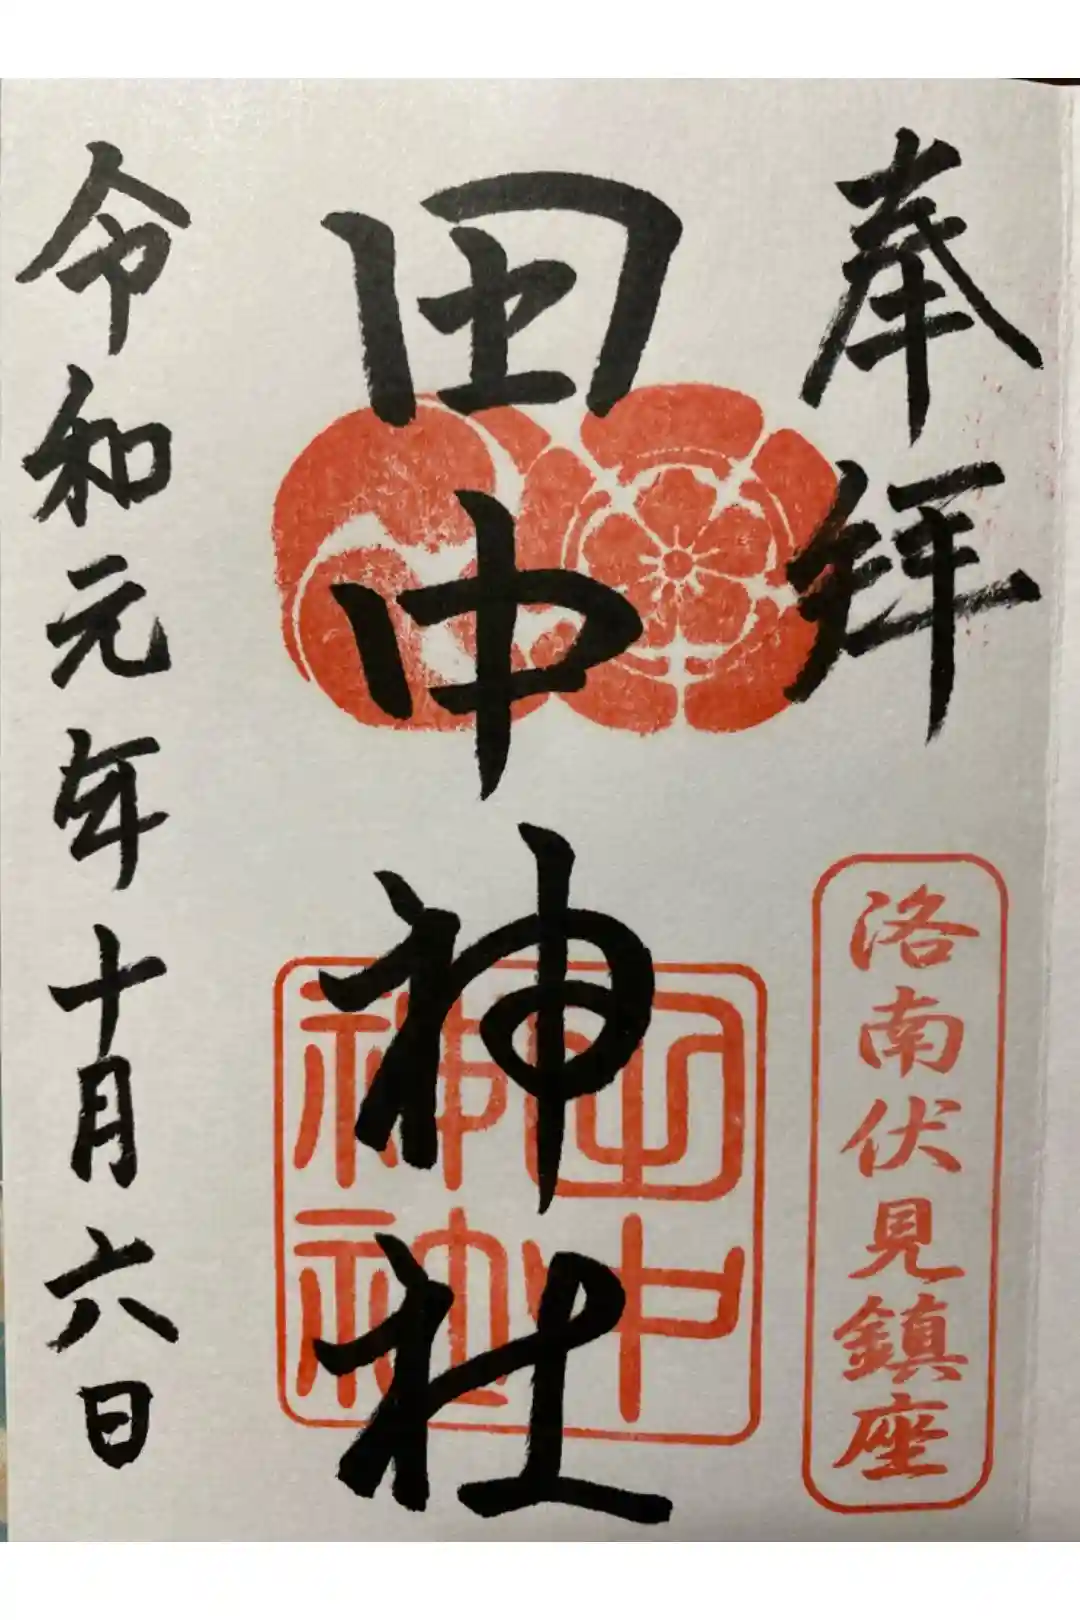 奉拝
洛南伏見鎮座
田中神社
田中
神社
令和元年十月六日